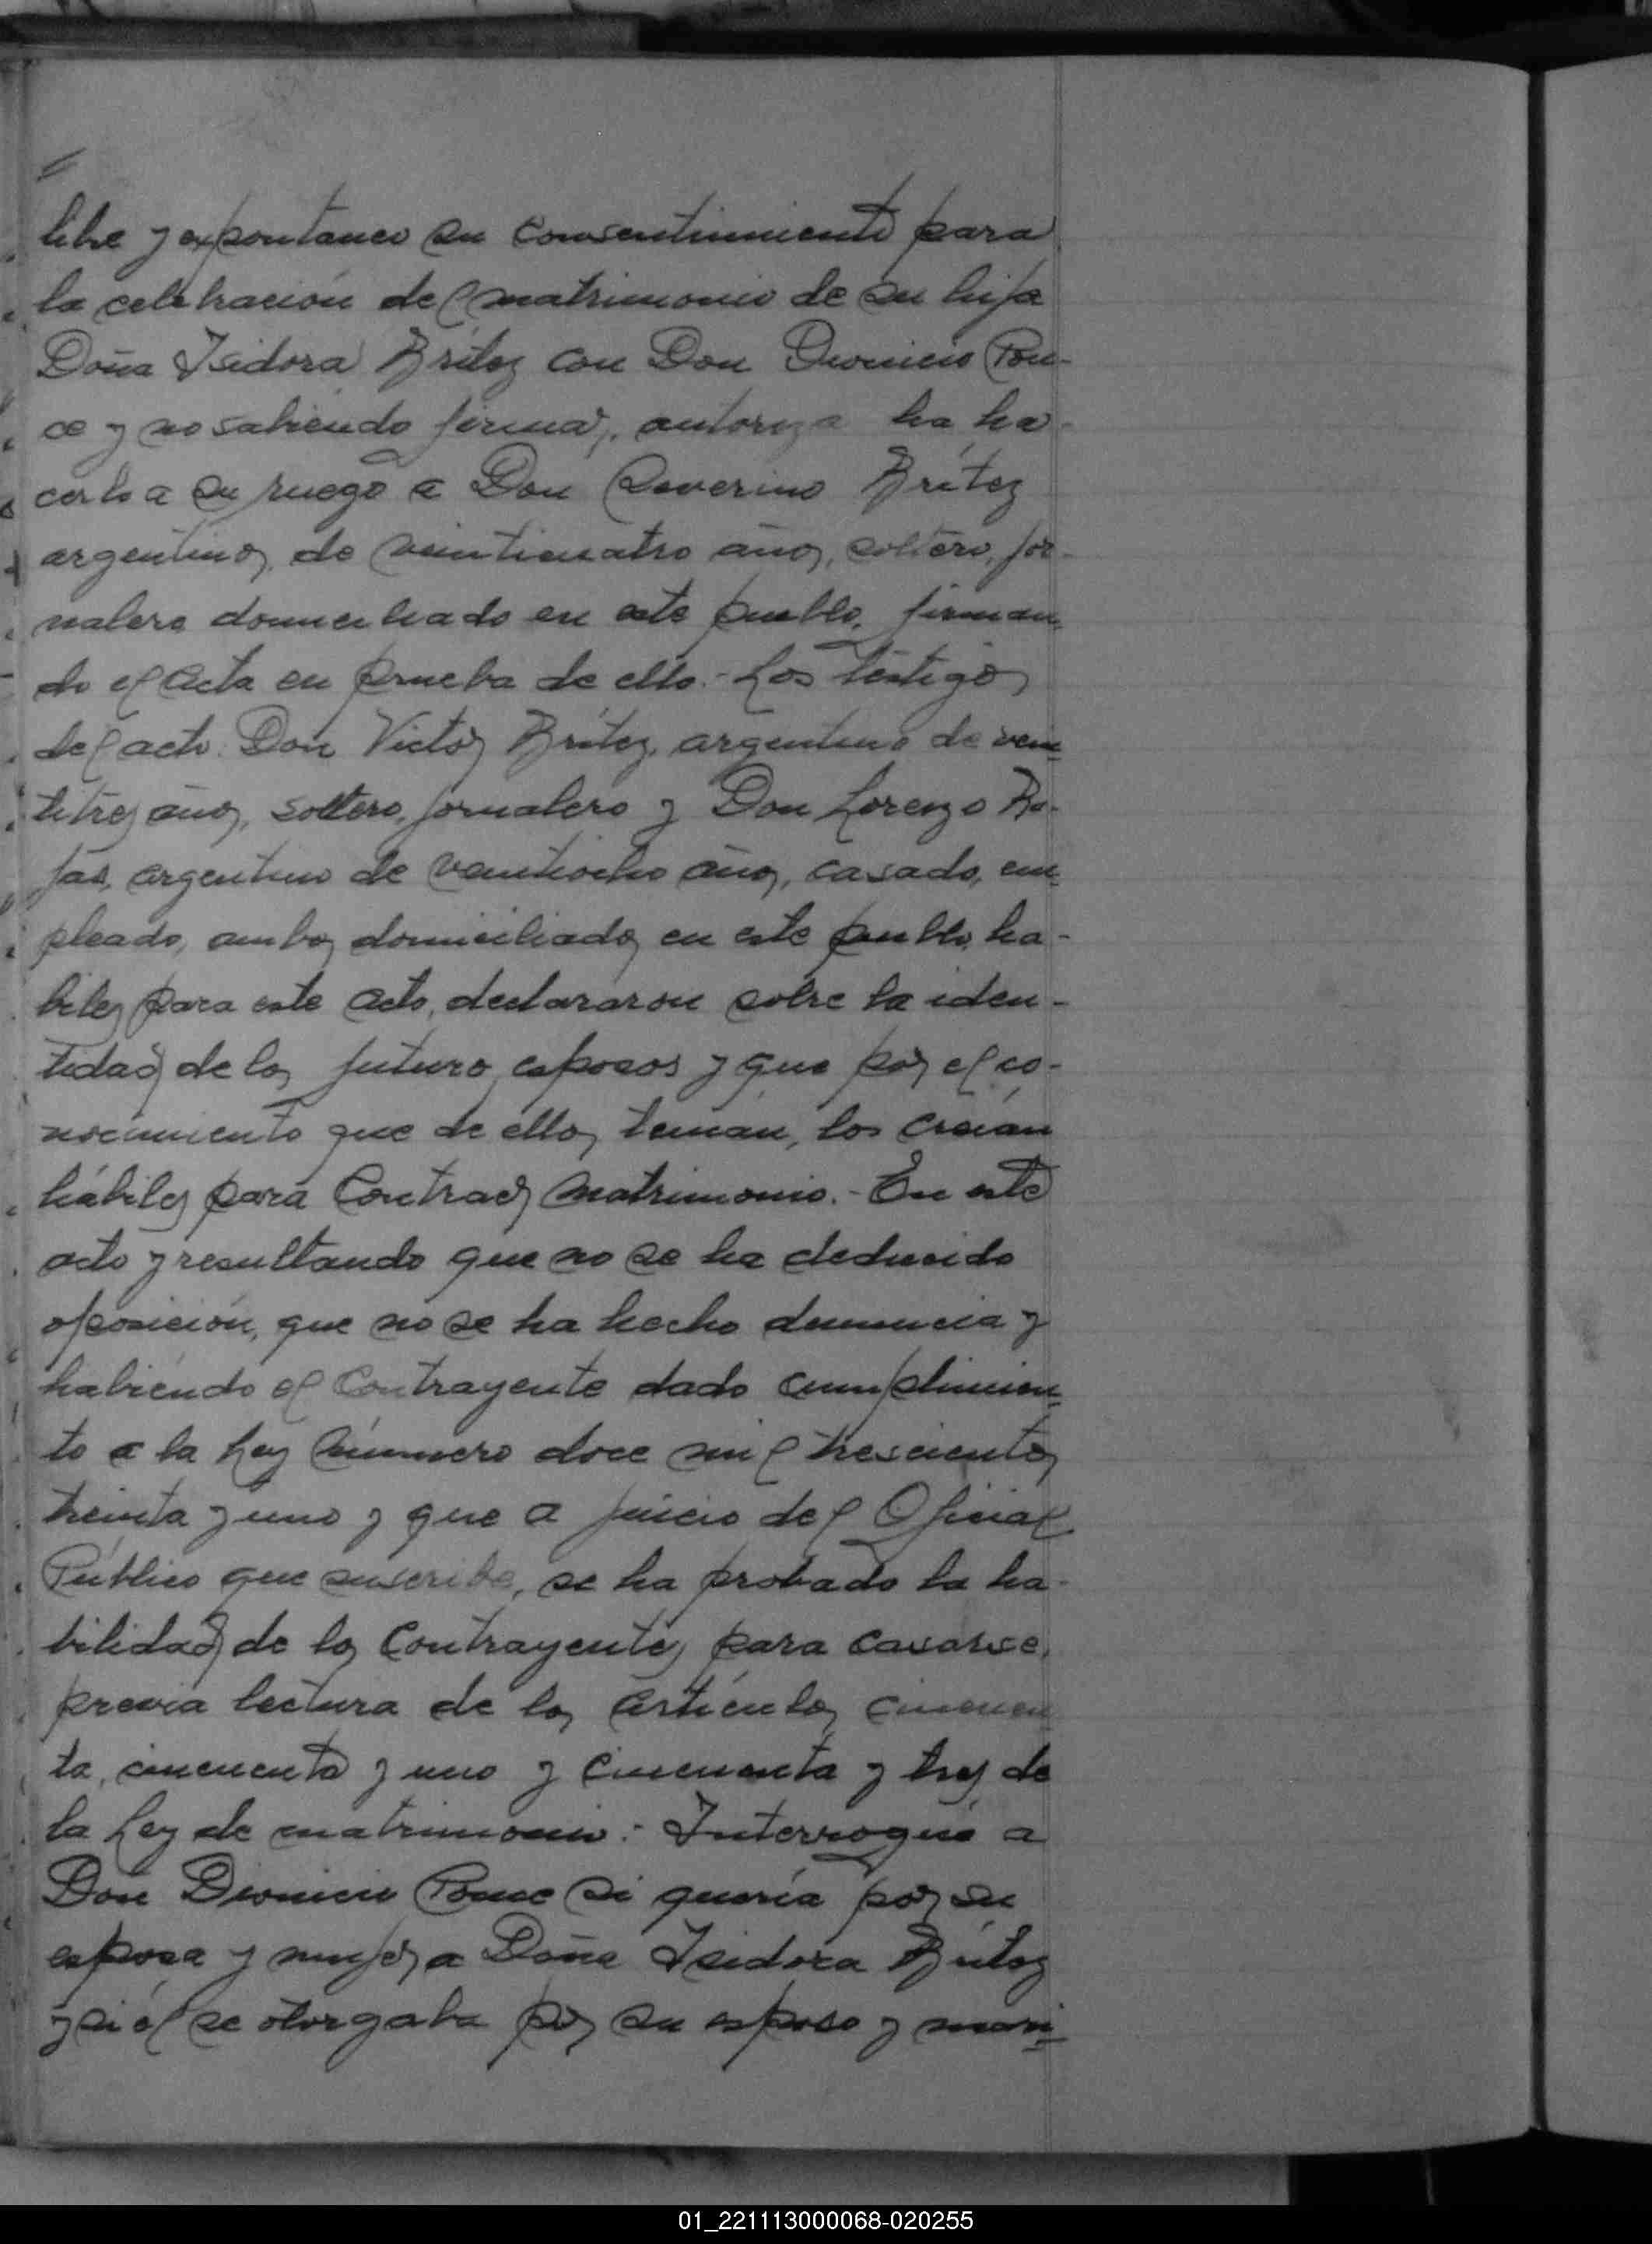 "
libre y expontaneo su consentimiento para
la celebración del matrimonio de su hija
Doña Isidora Brítez con Don Dionicio Pon-
ce y no sabiendo firmar, autoriza ha ha-
cerlo a su ruego a Don Severino Brítez
argentino, de veinticuatro años, soltero, jor-
nalero domiciliado en este pueblo, firman-
do el acta en prueba de ello.- Los testigos
del acto: Don Victor Brítez, argentino de vein-
titres años, soltero, jornalero y Don Lorenzo Ro-
jas, argentino de veintiocho años, casado, em-
pleado, ambos domiciliados en este pueblo, ha-
biles para este acto, declararon sobre la iden-
tidad de los futuros esposos y que por el co-
nocimiento que de ellos tenían, los creían
hábiles para contraer matrimonio.- En este
acto y resultando que no se ha deducido
oposición, que no se ha hecho denuncia y
habiendo el contrayente dado cumplimien-
to a la Ley número doce mil trescientos
treinta y uno y que a juicio del Oficial
Público que suscribe, se ha probado la ha-
bilidad de los contrayentes para casarse,
previa lectura de los artículos cincuen
ta, cincuenta y uno y cincuenta y tres de
la Ley de matrimonio: Interrogué a
Don Dionicio Ponce si quería por su
esposa y mujer a Doña Isidora Brítez
y si él se otorgaba por su esposo y mari-
01_221113000068-020255